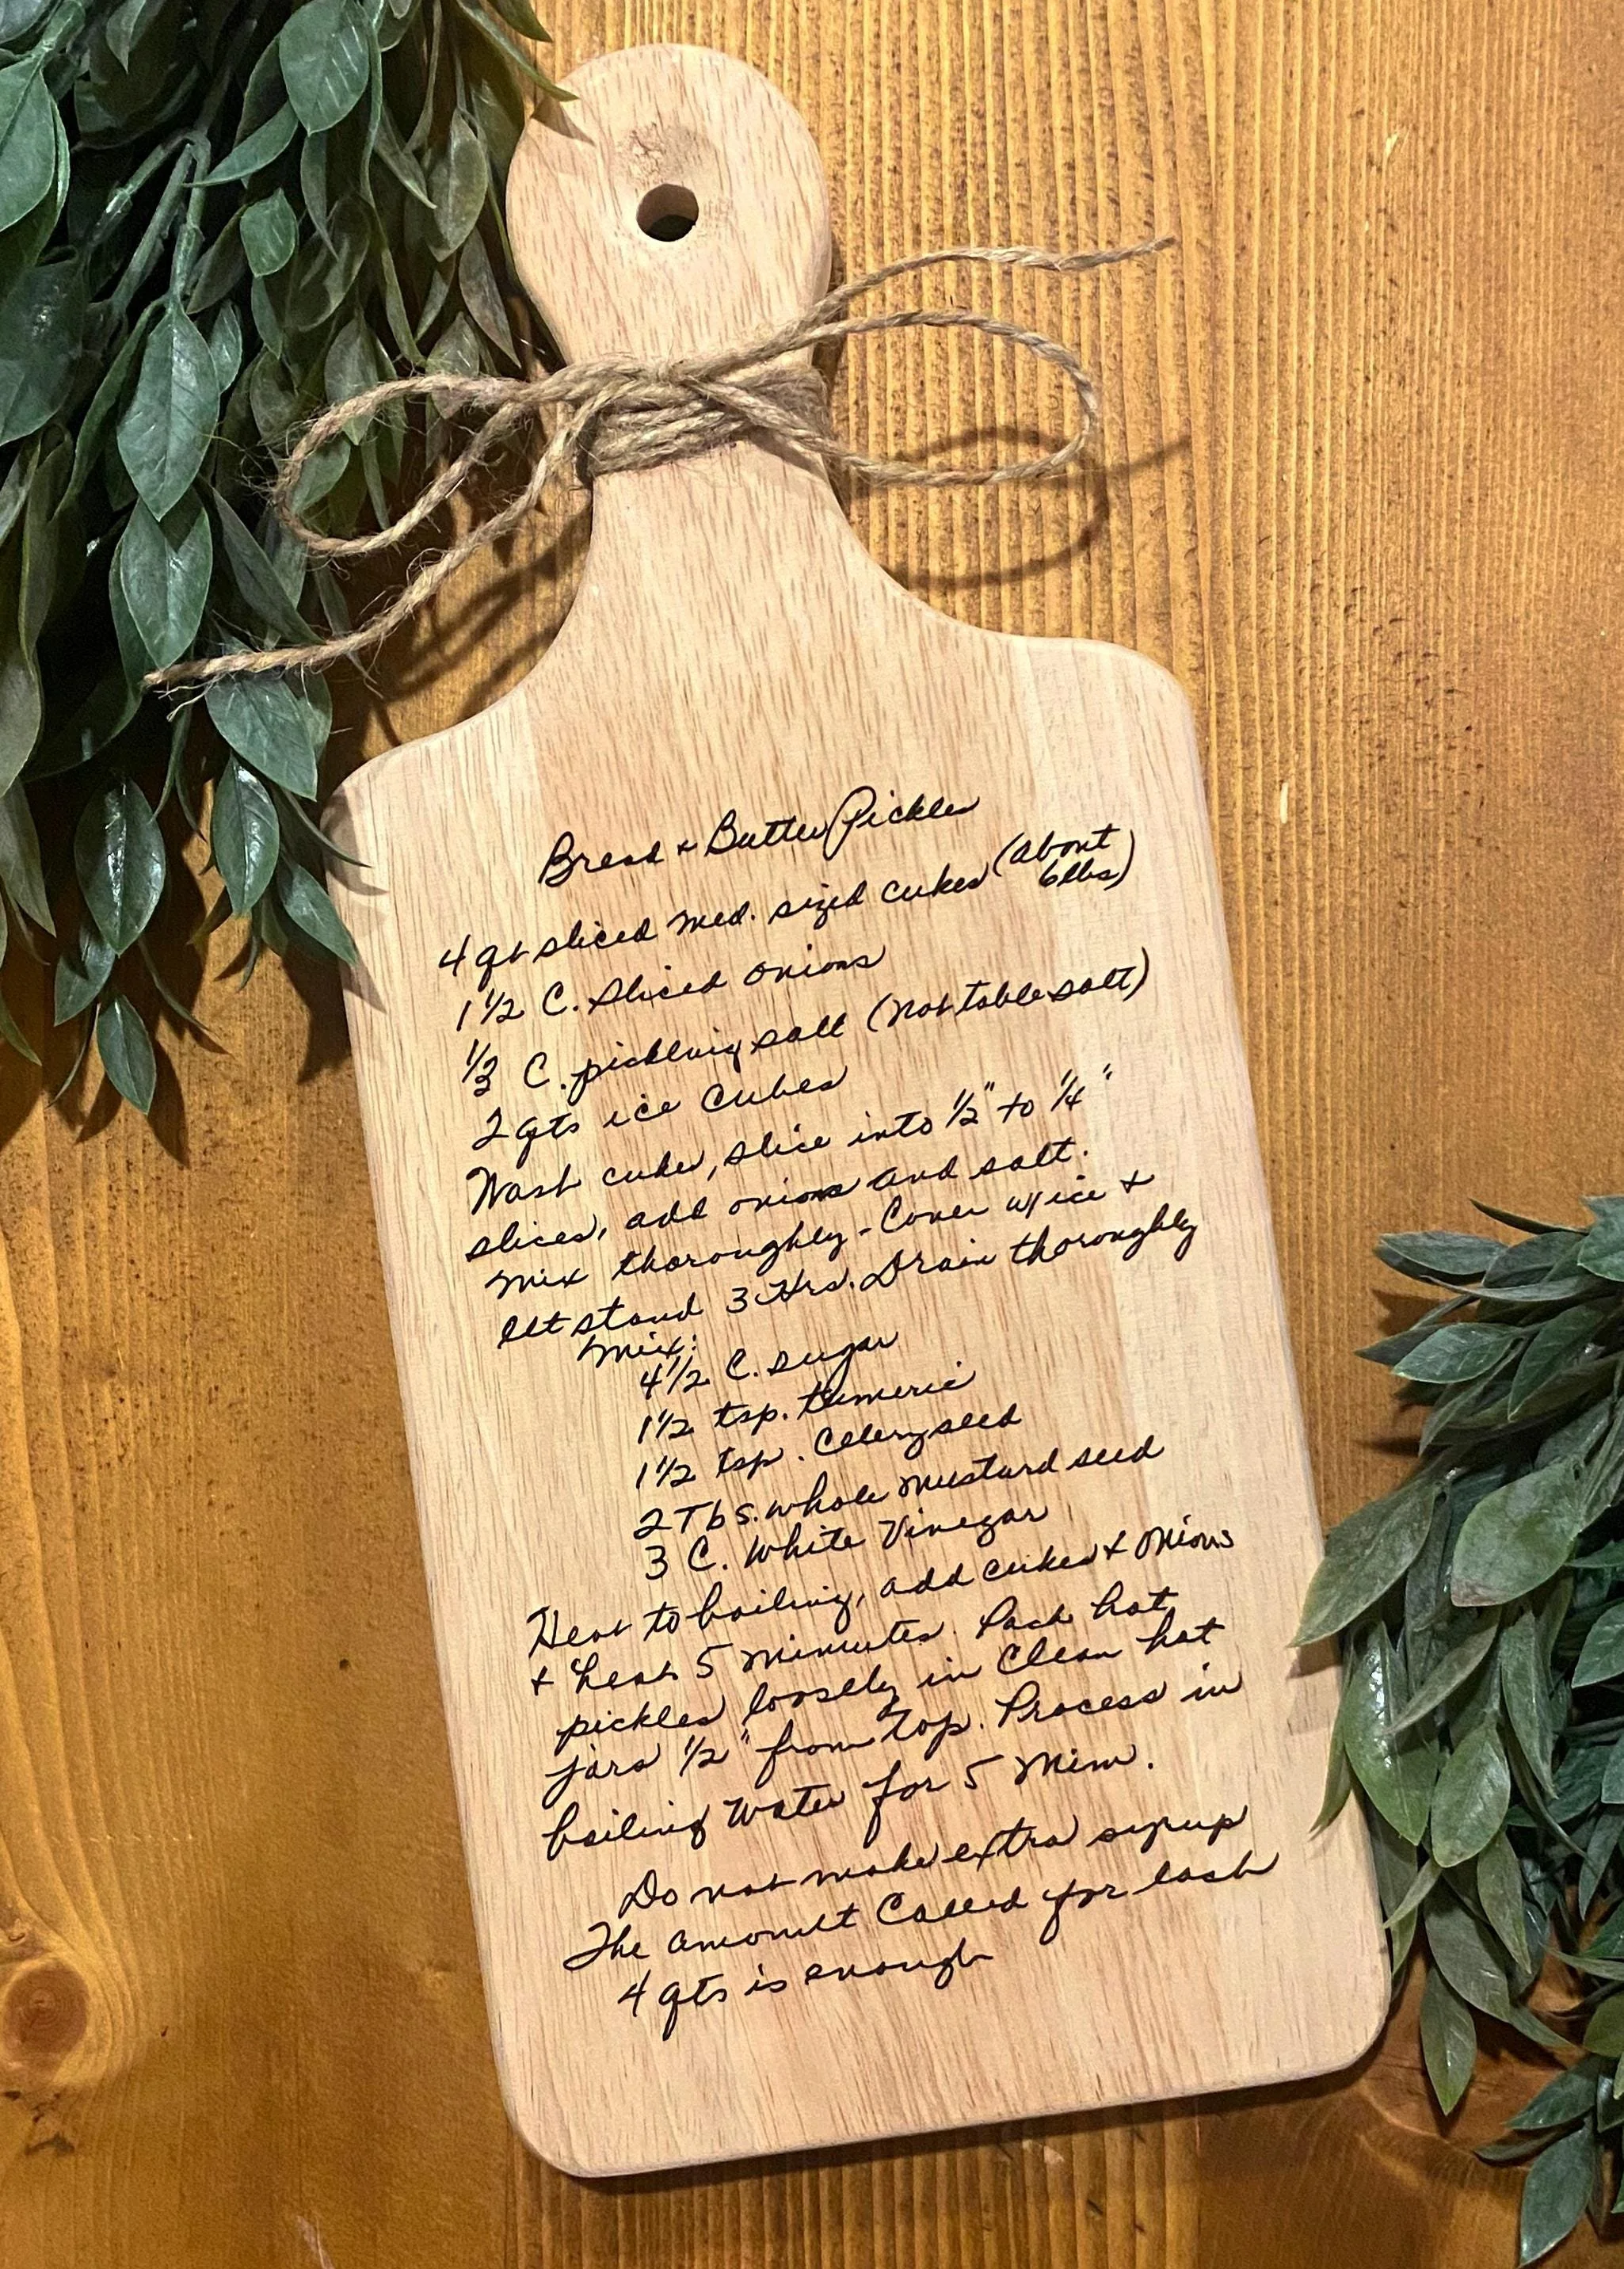 Bread & Butter Pickles
4 qt sliced med. sized cukes (about
6 lbs)
1 1/2 C. Sliced onions
1/3 C. pickling salt (not table salt)
2 qts ice Cubes
Wash cukes, slice into 1/2" to 1/4"
slices, add onions and salt.
Mix thoroughly - Cover w/ ice &
let stand 3 Hrs. Drain thoroughly
Mix:
4 1/2 C. sugar
1 1/2 tsp. tumeric
1 1/2 tsp. Celery seed
2 Tbs. whole mustard seed
3 C. White Vinegar
Heat to boiling, add cukes & onions
& heat 5 minutes. Pack hot
pickles loosely in Clean hot
jars 1/2" from top. Process in
boiling Water for 5 Min.
Do not make extra syrup
The amount Called for each
4 qts is enough